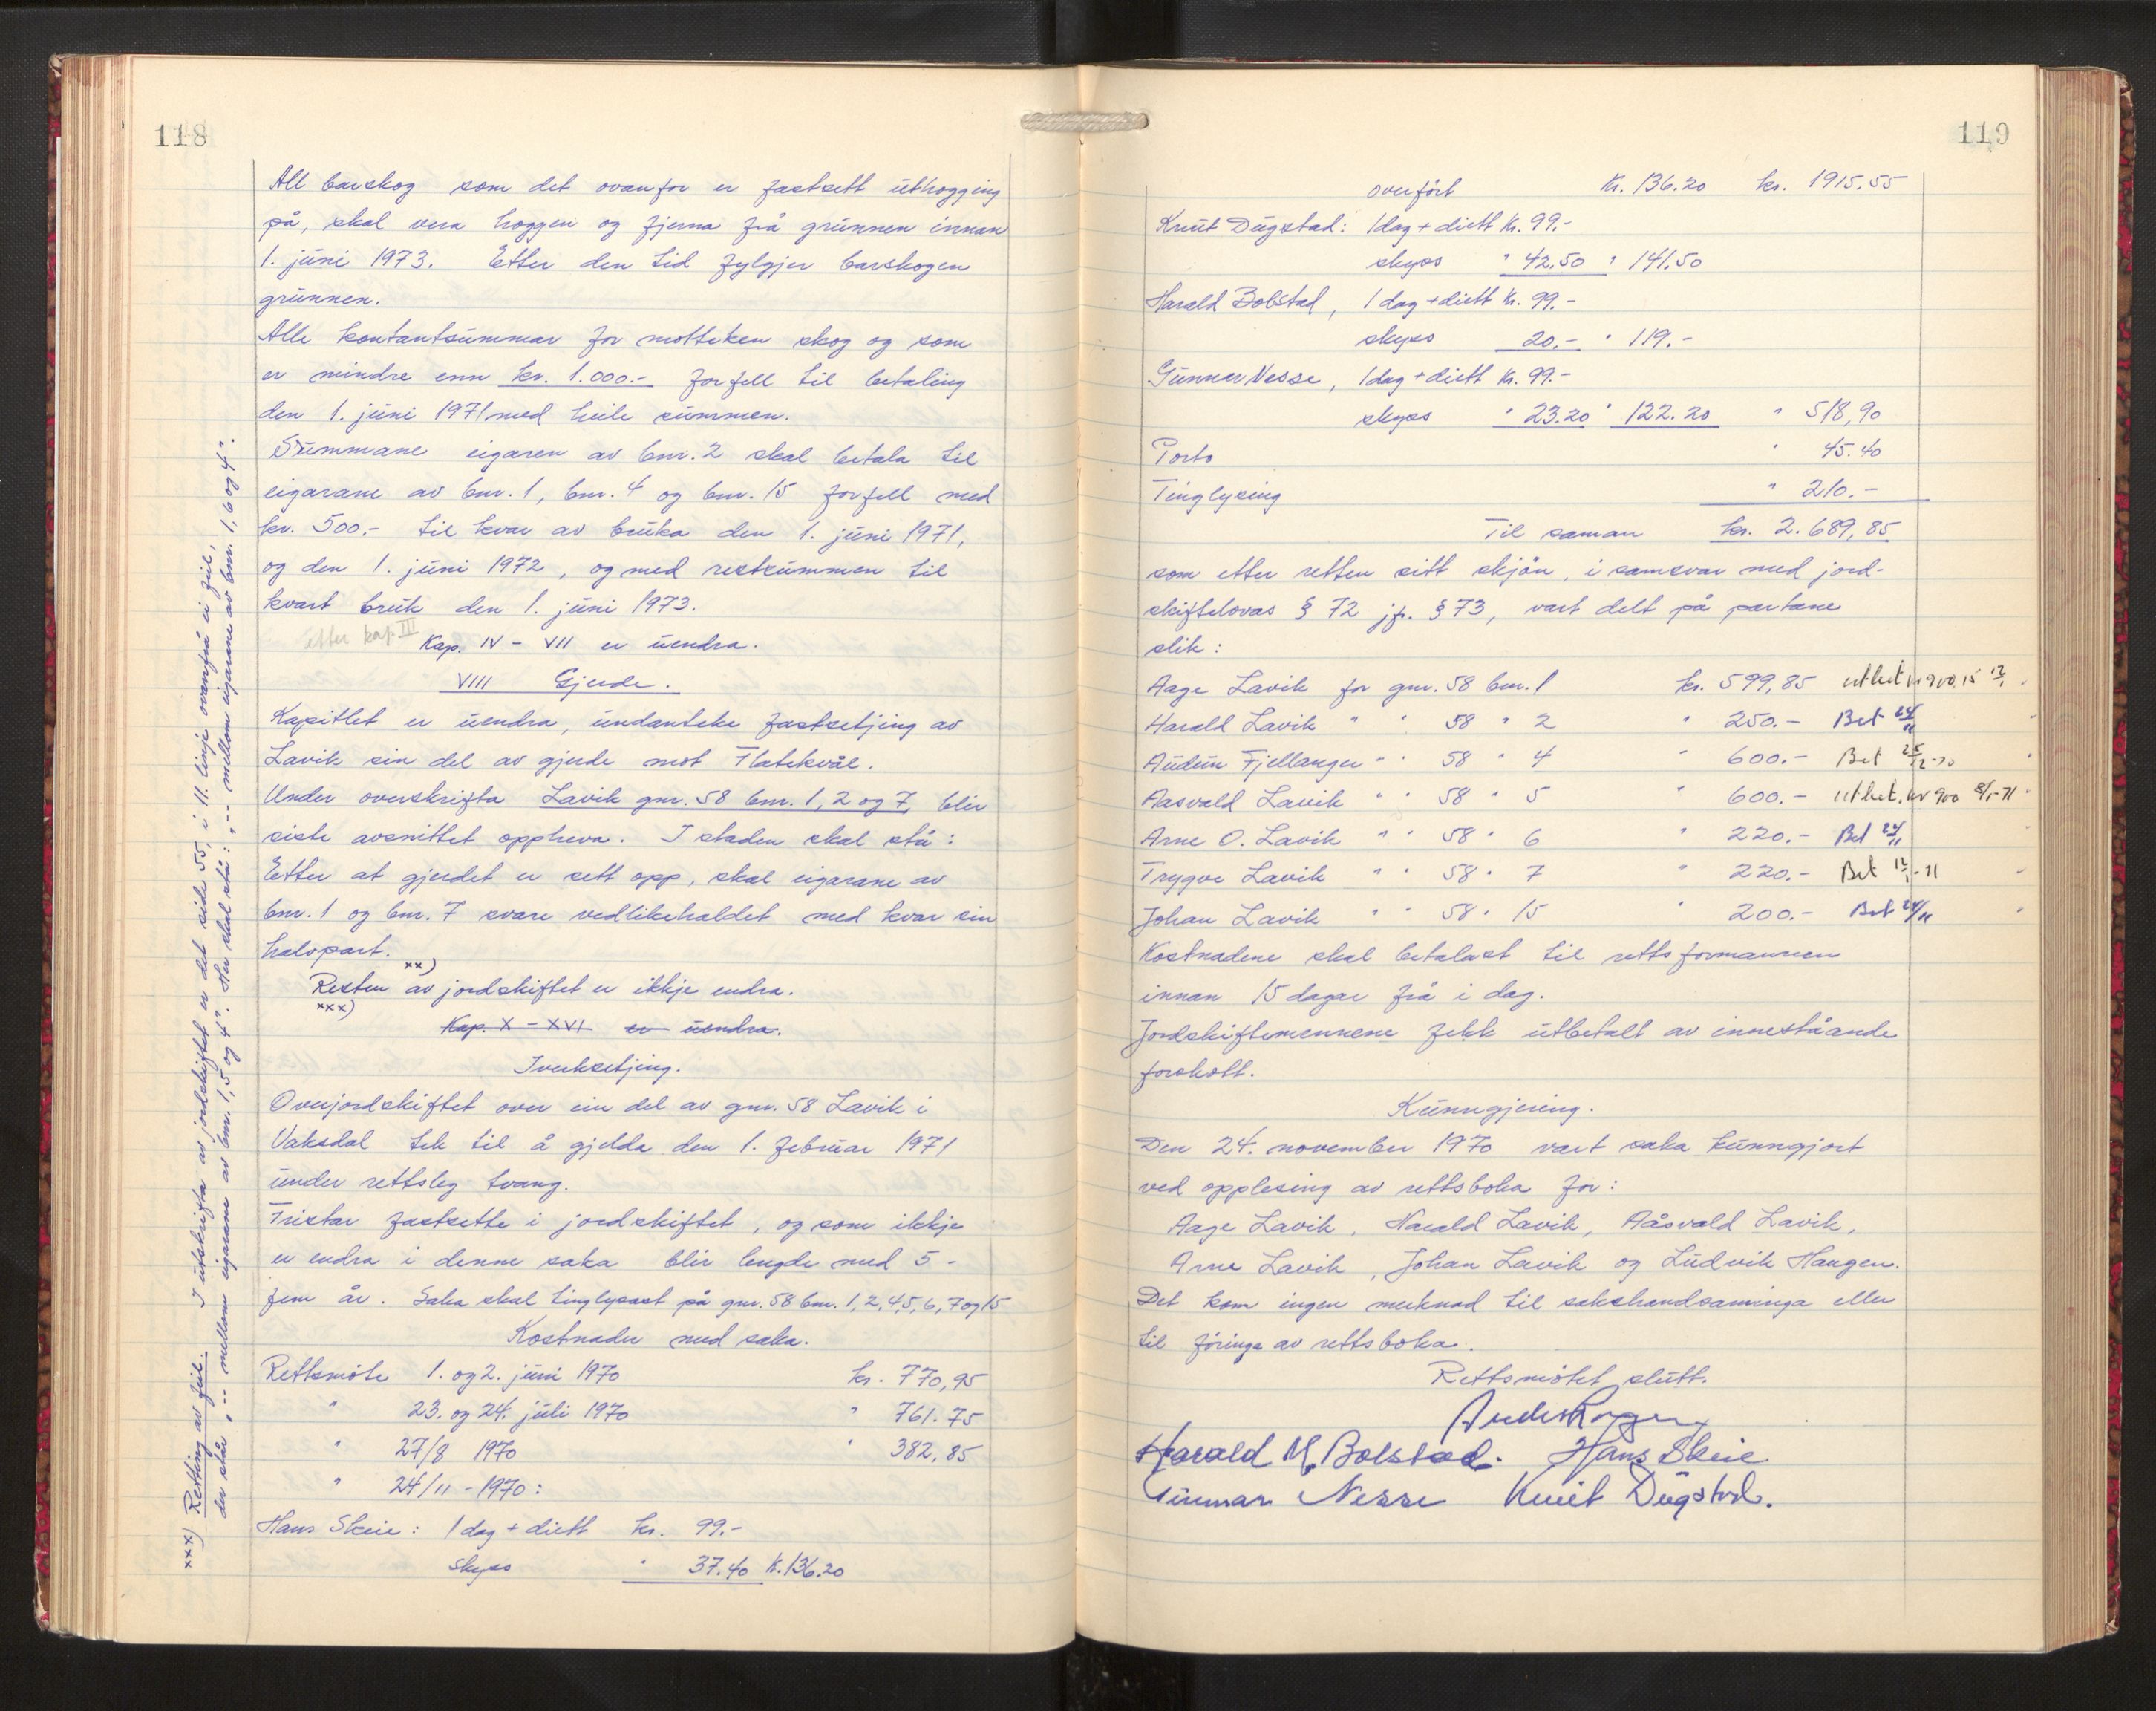 118
All barskog som det ovanfor er fastsett uthogging
på, skal vera hoggen og fjerna frå grunnen innan
1. juni 1973. Etter den tid fylgjer barskogen
grunnen.
Alle kontantsummar for motteken skog og som
er mindre enn kr. 1.000.- forfell til betaling
den 1. juni 1971 med heile summen.
Summane eigaren av bnr. 2 skal betala til
eigarane av bnr. 1, bnr. 4 og bnr. 15 forfell med
kr. 500.- til kvar av bruka den 1. juni 1971,
og den 1. juni 1972, og med restsummen til
kvart bruk den 1. juni 1973.
etter kap. III
Kap. IV - VII er uendra.
VIII Gjerde.
Kapitlet er uendra, undanteke fastsetjing av
Lavik sin del av gjerde mot Flatekvål.
Under overskrifta Lavik gnr. 58 bnr. 1, 2 og 7, blir
siste avsnittet oppheva. I staden skal stå:
Etter at gjerdet er sett opp, skal eigarane av
bnr. 1 og bnr. 7 svare vedlikehaldet med kvar sin
halvpart.
xx)
Resten av jordskiftet er ikkje endra.
xxx)
Kap. X - XVI er uendra.
Iverksetjing.
Overjordskiftet over ein del av gnr. 58 Lavik i
Vaksdal tek til å gjelda den 1. februar 1971
under rettsleg tvang.
Fristar fastsette i jordskiftet, og som ikkje
er endra i denne saka blir lengde med 5 -
fem år. Saka skal tinglysast på gnr. 58 bnr. 1, 2, 4, 5, 6, 7 og 15
Kostnader med saka.
Rettsmöte 1. og 2. juni 1970 kr. 770,95
" 23. og 24. juli 1970 " 761.75
" 27/8 1970 " 382,85
" 24/11 - 1970:
Hans Skeie: 1 dag + diett kr. 99.-
Skyss " 37.40 kr. 136.20
xxx) Retting av feil. I utskrifta av jordskiftet er det side 55, i 11. linje ovanfrå ei feil,
der står "-- mellom eigarane av bnr. 1, 5 og 4". Her skal stå: "-- mellom eigarane av bnr. 1, 6 og 4".
119
overfört kr. 136.20 kr. 1915.55
Knut Dugstad: 1 dag + diett kr. 99.-
skyss " 42.50 " 141.50
Harald Bolstad, 1 dag + diett kr. 99.-
skyss 20.- " 119.-
Gunnar Nesse, 1 dag + diett kr. 99.-
skyss " 23.20 " 122.20 " 518,90
Porto " 45.40
Tinglysing " 210.-
Til saman kr. 2.689,85
som etter retten sitt skjön, i samsvar med jord-
skiftelovas § 72 jfr. § 73, vart delt på partane
slik:
Aage Lavik for gnr. 58 bnr. 1 kr. 599,85 utbet kr 900.15 12/1
Harald Lavik " " 58 " 2 " 250.- Bet 24/11
Audun Fjellanger " " 58 " 4 " 600.- Bet 25/12-70
Aasvald Lavik " " 58 " 5 " 600.- utbet. kr 900 8/1-71
Arne O. Lavik " " 58 " 6 " 220.- Bet 24/11
Trygve Lavik " " 58 " 7 " 220.- Bet 12/1-71
Johan Lavik " " 58 " 15 " 200.- Bet 24/11
Kostnadene skal betalast til rettsformannen
innan 15 dagar frå i dag.
Jordskiftemennene fekk utbetalt av inneståande
forskott.
Kunngjering.
Den 24. november 1970 vart saka kunngjort
ved opplesing av rettsboka for:
Aage Lavik, Harald Lavik, Aåsvald Lavik,
Arne Lavik, Johan Lavik og Ludvik Haugen.
Det kom ingen merknad til sakshandsaminga eller
til föringa av rettsboka.
Rettsmötet slutt.
Harald M. Bolstad. Hans Skeie
Gunnar Nesse Knut Dugstad.